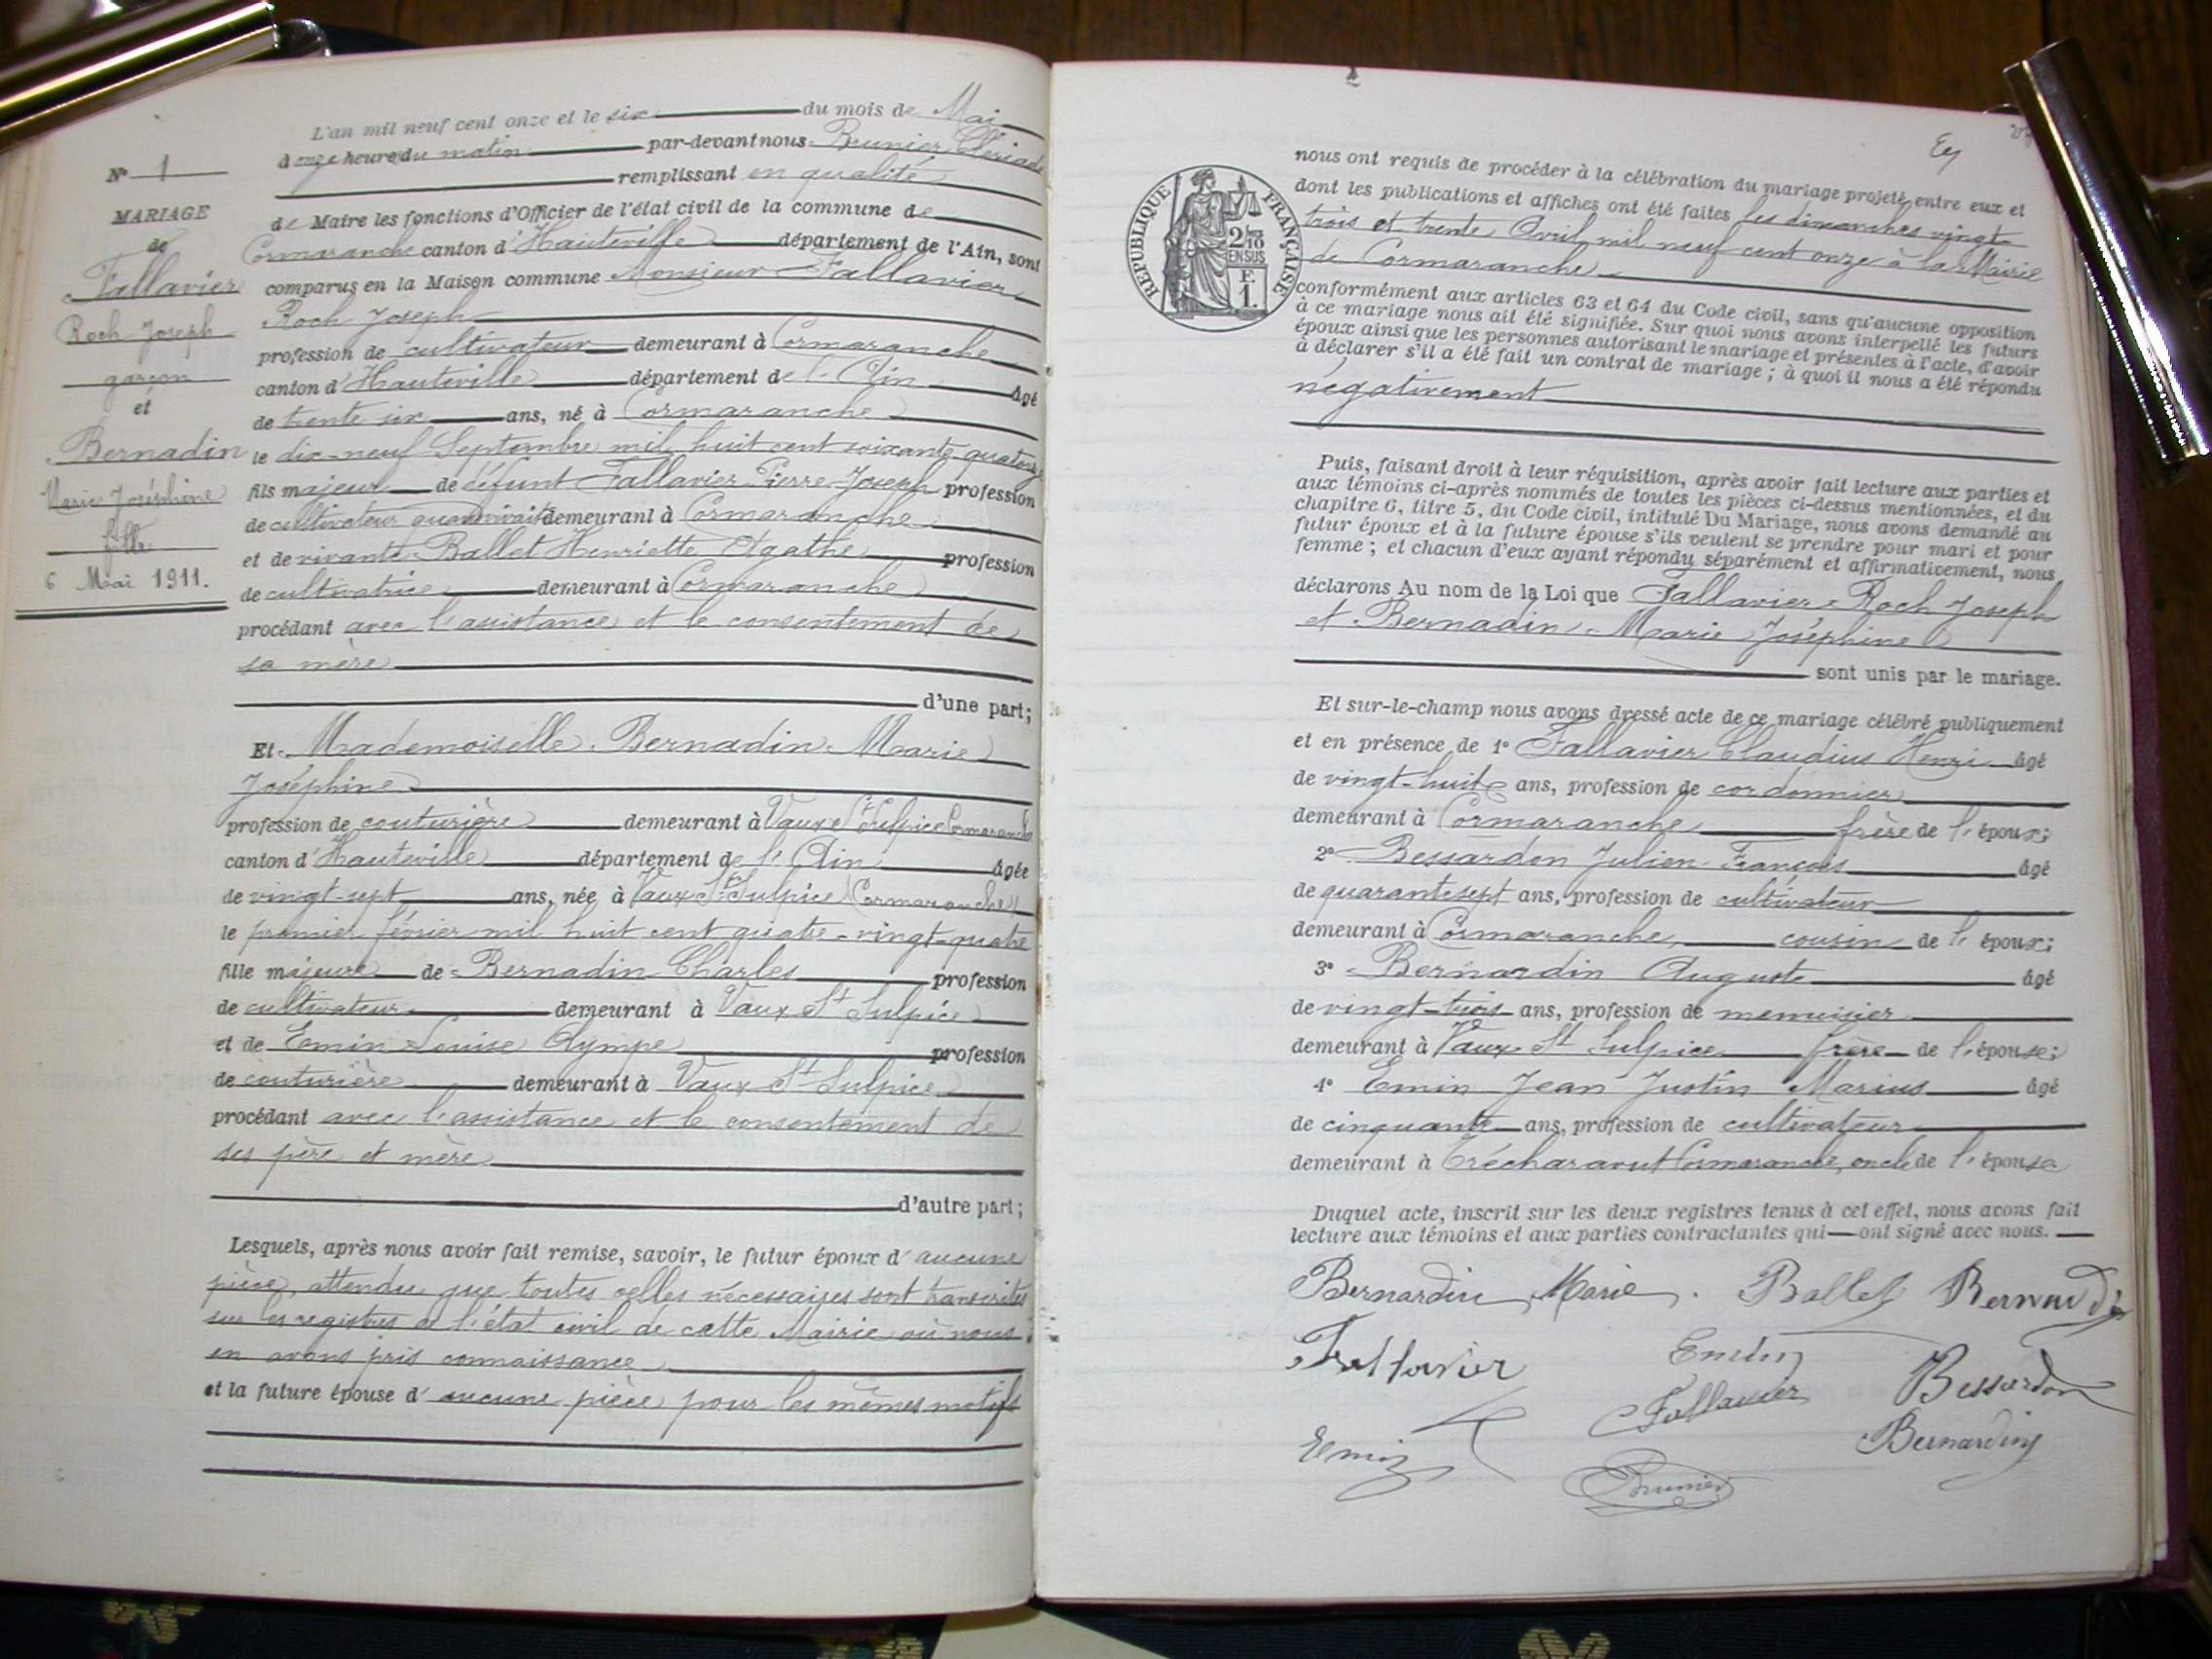 N° 1
MARIAGE
de
Fallavier
Roch Joseph
garçon
et
Bernadin
Marie Joséphine
fille
6 Mai 1911.
L'an mil neuf cent onze et le six du mois de Mai
à onze heure du matin par-devant nous Brunier
remplissant en qualité
de Maire les fonctions d'Officier de l'état civil de la commune de
Cormaranche canton d'Hauteville département de l'Ain, sont
comparus en la Maison commune Monsieur Fallavier
Roch Joseph
profession de cultivateur demeurant à Cormaranche
canton d'Hauteville département de l'Ain âgé
de trente six ans, né à Cormaranche
le dix-neuf Septembre mil huit cent soixante-quatorze
fils majeur de défunt Fallavier Pierre-Joseph profession
de cultivateur quand vivait demeurant à Cormaranche
et de vivante Ballet Henriette Agathe profession
de cultivatrice demeurant à Cormaranche
procédant avec l'assistance et le consentement de
sa mère
d'une part;
Et Mademoiselle Bernadin Marie
Joséphine
profession de couturière demeurant à Vaux St Sulpice Cormaranche
canton d'Hauteville département de l'Ain âgée
de vingt-sept ans, née à Vaux St Sulpice (Cormaranche)
le premier février mil huit cent quatre-vingt-quatre
fille majeure de Bernadin Charles profession
de cultivateur demeurant à Vaux St Sulpice
et de Emin Louise Olympe profession
de couturière demeurant à Vaux St Sulpice
procédant avec l'assistance et le consentement de
ses père et mère
d'autre part;
Lesquels, après nous avoir fait remise, savoir, le futur époux d'aucune
pièce, attendu que toutes celles nécessaires sont transcrites
sur les registres de l'état civil de cette Mairie où nous
en avons pris connaissance
et la future épouse d'aucune pièce pour les mêmes motifs
RÉPUBLIQUE FRANÇAISE
2/10
EN SUS
F.
1.
nous ont requis de procéder à la célébration du mariage projeté entre eux et
dont les publications et affiches ont été faites les dimanches vingt-
trois et trente Avril mil neuf cent onze à la Mairie
de Cormaranche
conformément aux articles 63 et 64 du Code civil, sans qu'aucune opposition
à ce mariage nous ait été signifiée. Sur quoi nous avons interpellé les futurs
époux ainsi que les personnes autorisant le mariage et présentes à l'acte, d'avoir
à déclarer s'il a été fait un contrat de mariage; à quoi il nous a été répondu
négativement
Puis, faisant droit à leur réquisition, après avoir fait lecture aux parties et
aux témoins ci-après nommés de toutes les pièces ci-dessus mentionnées, et du
chapitre 6, titre 5, du Code civil, intitulé Du Mariage, nous avons demandé au
futur époux et à la future épouse s'ils veulent se prendre pour mari et pour
femme; et chacun d'eux ayant répondu séparément et affirmativement, nous
déclarons Au nom de la Loi que Fallavier Roch Joseph
et Bernadin Marie Joséphine
sont unis par le mariage.
Et sur-le-champ nous avons dressé acte de ce mariage célébré publiquement
et en présence de 1° Fallavier Claudius Henri âgé
de vingt-huit ans, profession de cordonnier
demeurant à Cormaranche frère de l'époux;
2° Bessardon Julien François âgé
de quarante sept ans, profession de cultivateur
demeurant à Cormaranche, cousin de l'époux;
3° Bernardin Auguste âgé
de vingt-trois ans, profession de menuisier
demeurant à Vaux St Sulpice frère de l'épouse;
4° Emin Jean Justin Marius âgé
de cinquante ans, profession de cultivateur
demeurant à Cormaranche, oncle de l'épouse
Duquel acte, inscrit sur les deux registres tenus à cet effet, nous avons fait
lecture aux témoins et aux parties contractantes qui ont signé avec nous.
Bernardin Marie Ballet Bernardin
Fallavier Emin Bessardon
Fallavier
Emin Bernardin
Brunier